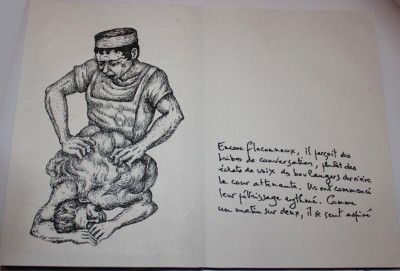 Encore floconneux, il perçoit des
bribes de conversation, plutôt des
éclats de voix des boulangers derrière
la cour attenante. Ils ont commencé
leur pétrissage rythmé. Comme
un matin sur deux, il se sent aspiré